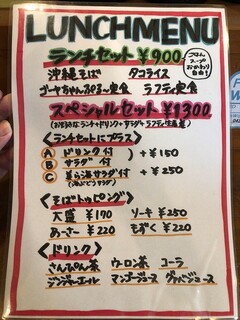 LUNCHMENU
ランチセット ¥900
ごはん
スープ
おかわり
自由!
沖縄そば タコライス
ゴーヤちゃんぷるー定食 ラフティ定食
スペシャルセット ¥1300
<ランチセットにプラス>
Ⓐ ドリンク付
Ⓑ サラダ 付 + ¥150
Ⓒ + ¥250
<そばトッピング>
大盛 ¥170 ソーキ ¥250
あーさー ¥220 もずく ¥220
<ドリンク>
さんぴん茶 ウーロン茶 コーラ
ジンジャーエール マンゴージュース グァバジュース